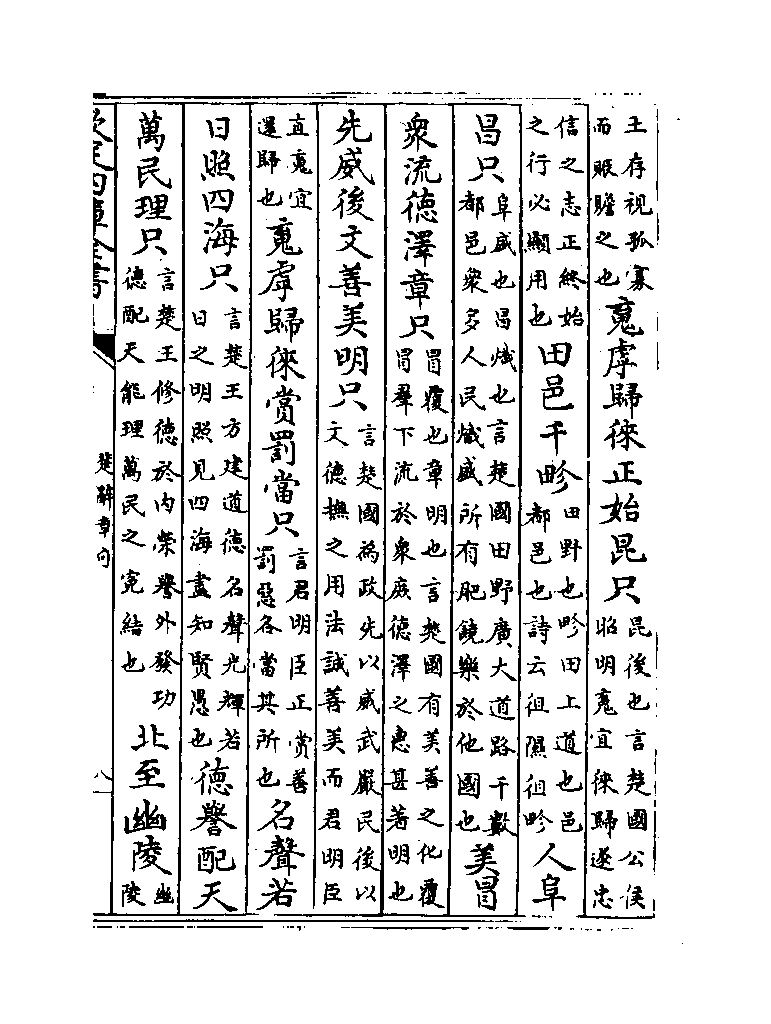 王存視孤寡而賑贍之也䰟虖歸徠正始昆只昆後也言楚國公侯昭明䰟宜徠歸遂忠
信之志正終始之行必顯用也田邑千畛田野也畛田上道也邑都邑也詩云徂隰徂畛人阜
昌只阜盛也昌熾也言楚國田野廣大道路千數都邑衆多人民熾盛所有肥饒樂於他國也美冒
衆流德澤章只冒覆也章明也言楚國有美善之化覆冒羣下流於衆庶德澤之惠甚著明也
先威後文善美明只言楚國為政先以威武嚴民後以文德撫之用法誠善美而君明臣
直䰟宜還歸也䰟虖歸徠賞罰當只言君明臣正賞善罰惡各當其所也名聲若
日照四海只言楚王方建道德名聲光輝若日之明照見四海盡知賢愚也德譽配天
萬民理只言楚王修德於内榮譽外發功德配天能理萬民之寃結也北至幽陵幽陵
欽定四庫全書
楚辭章句
八